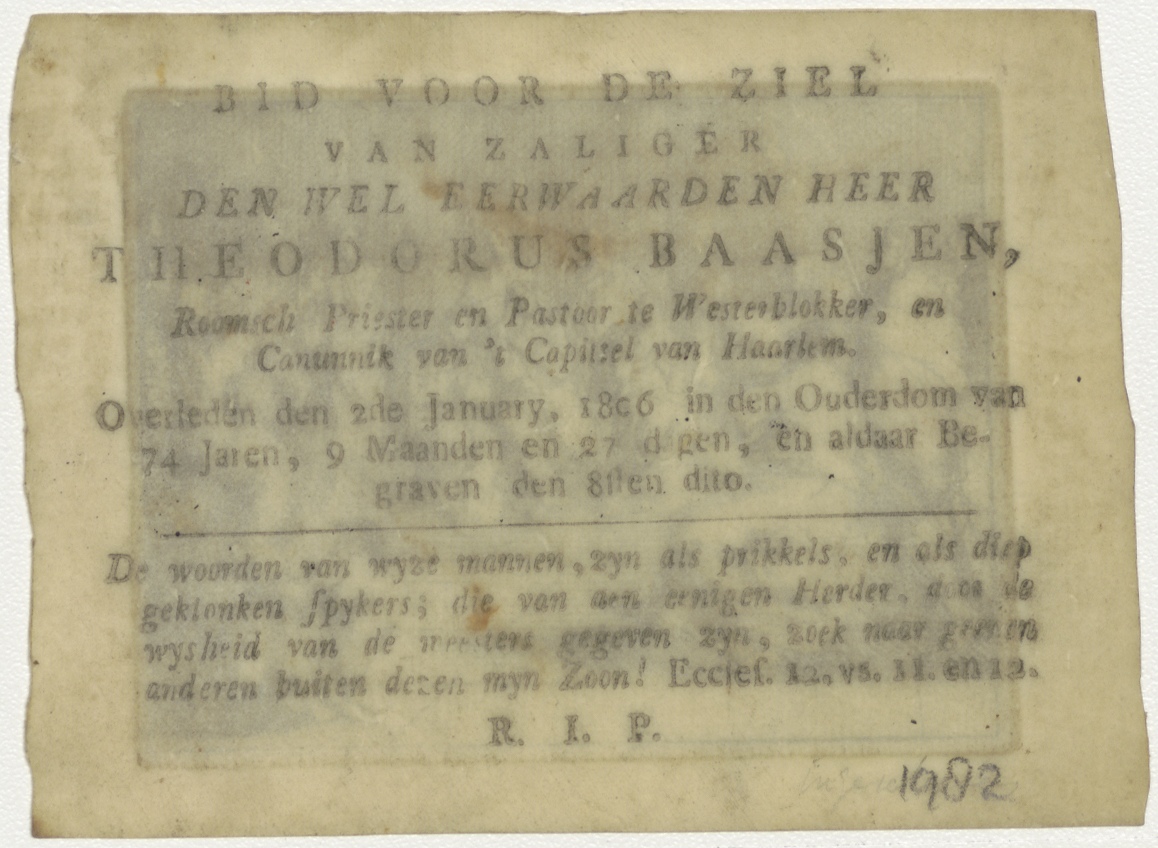 BID VOOR DE ZIEL
VAN ZALIGER
DEN WEL EERWAARDEN HEER
THEODORUS BAASJEN,
Roomsch Priester en Pastoor te Westerblokker, en
Canunnik van 't Capittel van Haarlem.
Overleden den 2de January, 1806 in den Ouderdom van
74 Jaren, 9 Maanden en 27 dagen, en aldaar Be-
graven den 8sten dito.
De woorden van wyze mannen, zyn als prikkels, en als diep
geklonken ſpykers; die van een eenigen Herder, door de
wysheid van de meesters gegeven zyn, zoek naar geenen
anderen buiten dezen myn Zoon! Eccleſ. 12. vs. 11. en 12.
R. I. P.
1982